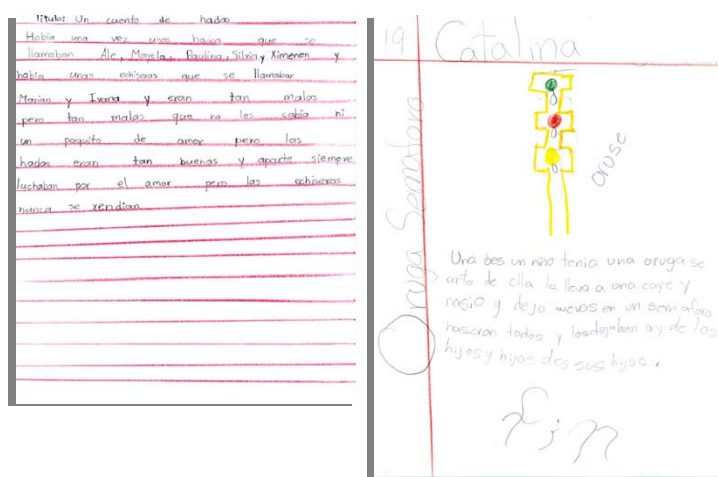 Titulo: Un cuento de hadas
Había una vez unas hadas que se
llamaban Ale, Mayela, Paulina, Silvia y Ximenen y
había unas echiseras que se llamabar
Marian y Ivana y eran tan malas
pero tan malas que no les cabia ni
un poquito de amor pero las
hadas eran tan buenas y aparte siempre
luchaban por el amor pero las echiseras
nunca se rendian
19 Catalina
Oruga Semaforo
oruse
Una bes un niño tenia una oruga se
arto de ella la llevo a una caye y
nasio y dejo uevos en un semaforo
nacieron todos y los dejaban ay de los
hijos y hijos des sus hijos.
Fin